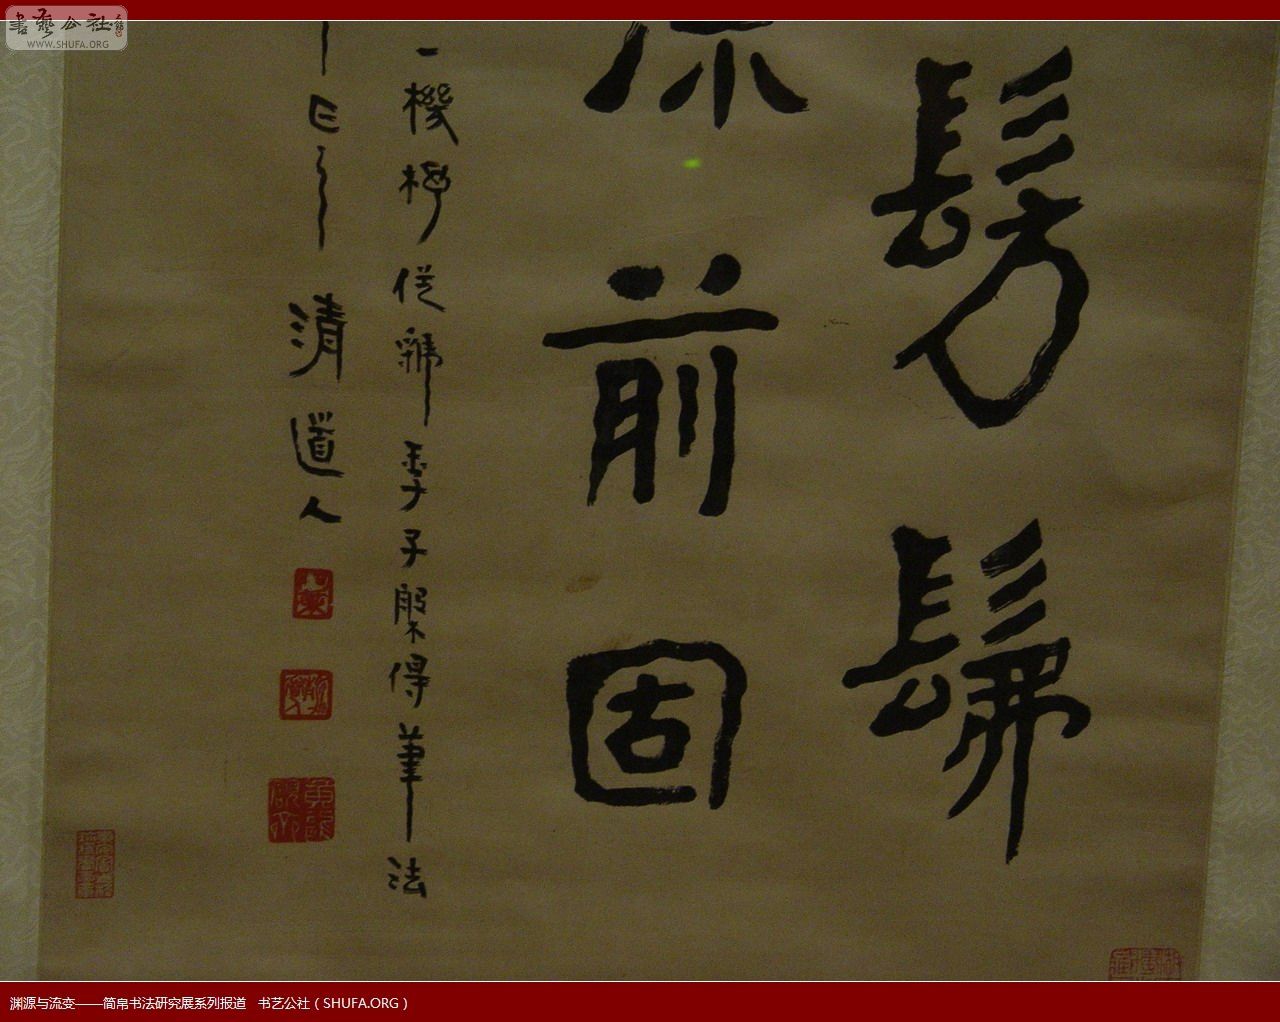 书艺公社
WWW.SHUFA.ORG
髣髴
前固
一機杼從虢季子槃得筆法
清道人
渊源与流变——简帛书法研究展系列报道 书艺公社（SHUFA.ORG）